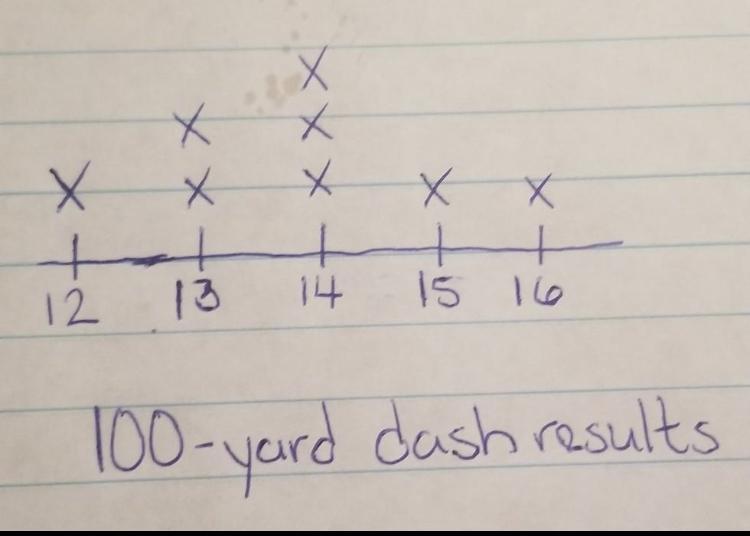 X
X X
X X X X X
12 13 14 15 16
100-yard dash results